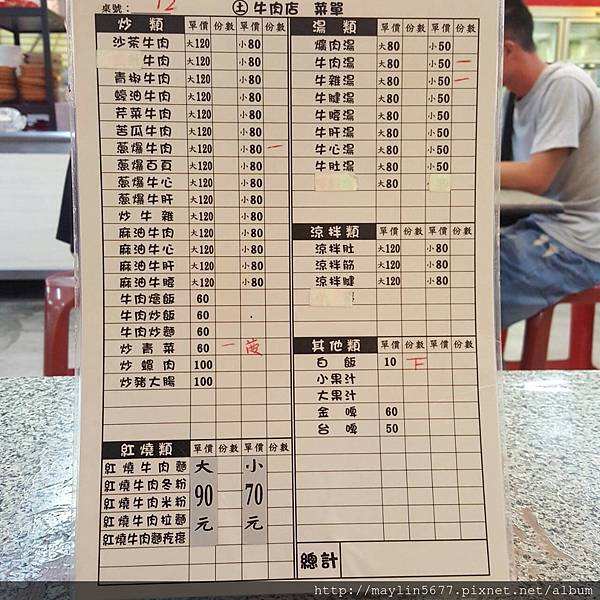 桌號： 12
土 牛肉店 菜單
炒類 單價 份數 單價 份數
沙茶牛肉 大120 小80
牛肉 大120 小80
青椒牛肉 大120 小80
蠔油牛肉 大120 小80
芹菜牛肉 大120 小80
苦瓜牛肉 大120 小80
蔥爆牛肉 大120 小80 一
蔥爆百頁 大120 小80
蔥爆牛心 大120 小80
蔥爆牛肝 大120 小80
炒牛雜 大120 小80
麻油牛肉 大120 小80
麻油牛心 大120 小80
麻油牛肝 大120 小80
麻油牛腰 大120 小80
牛肉燴飯 60
牛肉炒飯 60
牛肉炒麵 60
炒青菜 60 一
炒螺肉 100
炒豬大腸 100
紅燒類 單價 份數 單價 份數
紅燒牛肉麵 大 小
紅燒牛肉冬粉 90 70
紅燒牛肉米粉
紅燒牛肉拉麵 元 元
紅燒牛肉麵疙瘩
湯類 單價 份數 單價 份數
爌肉湯 大80 小50
牛肉湯 大80 小50 一
牛雜湯 大80 小50 一
牛腱湯 大80 小50
牛腰湯 大80 小50
牛肝湯 大80 小50
牛心湯 大80 小50
牛肚湯 大80 小50
大80
涼拌類 單價 份數 單價 份數
涼拌肚 大120 小80
涼拌筋 大120 小80
涼拌腱 大120 小80
其他類 單價 份數 單價 份數
白飯 10 下
小果汁
大果汁
金啤 60
台啤 50
總計
http://maylin5677.pixnet.net/album